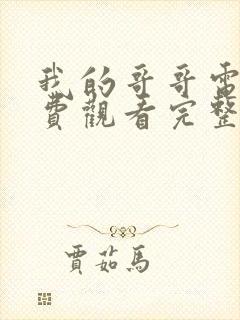 我的哥哥電
費觀看完整
賈茹馬